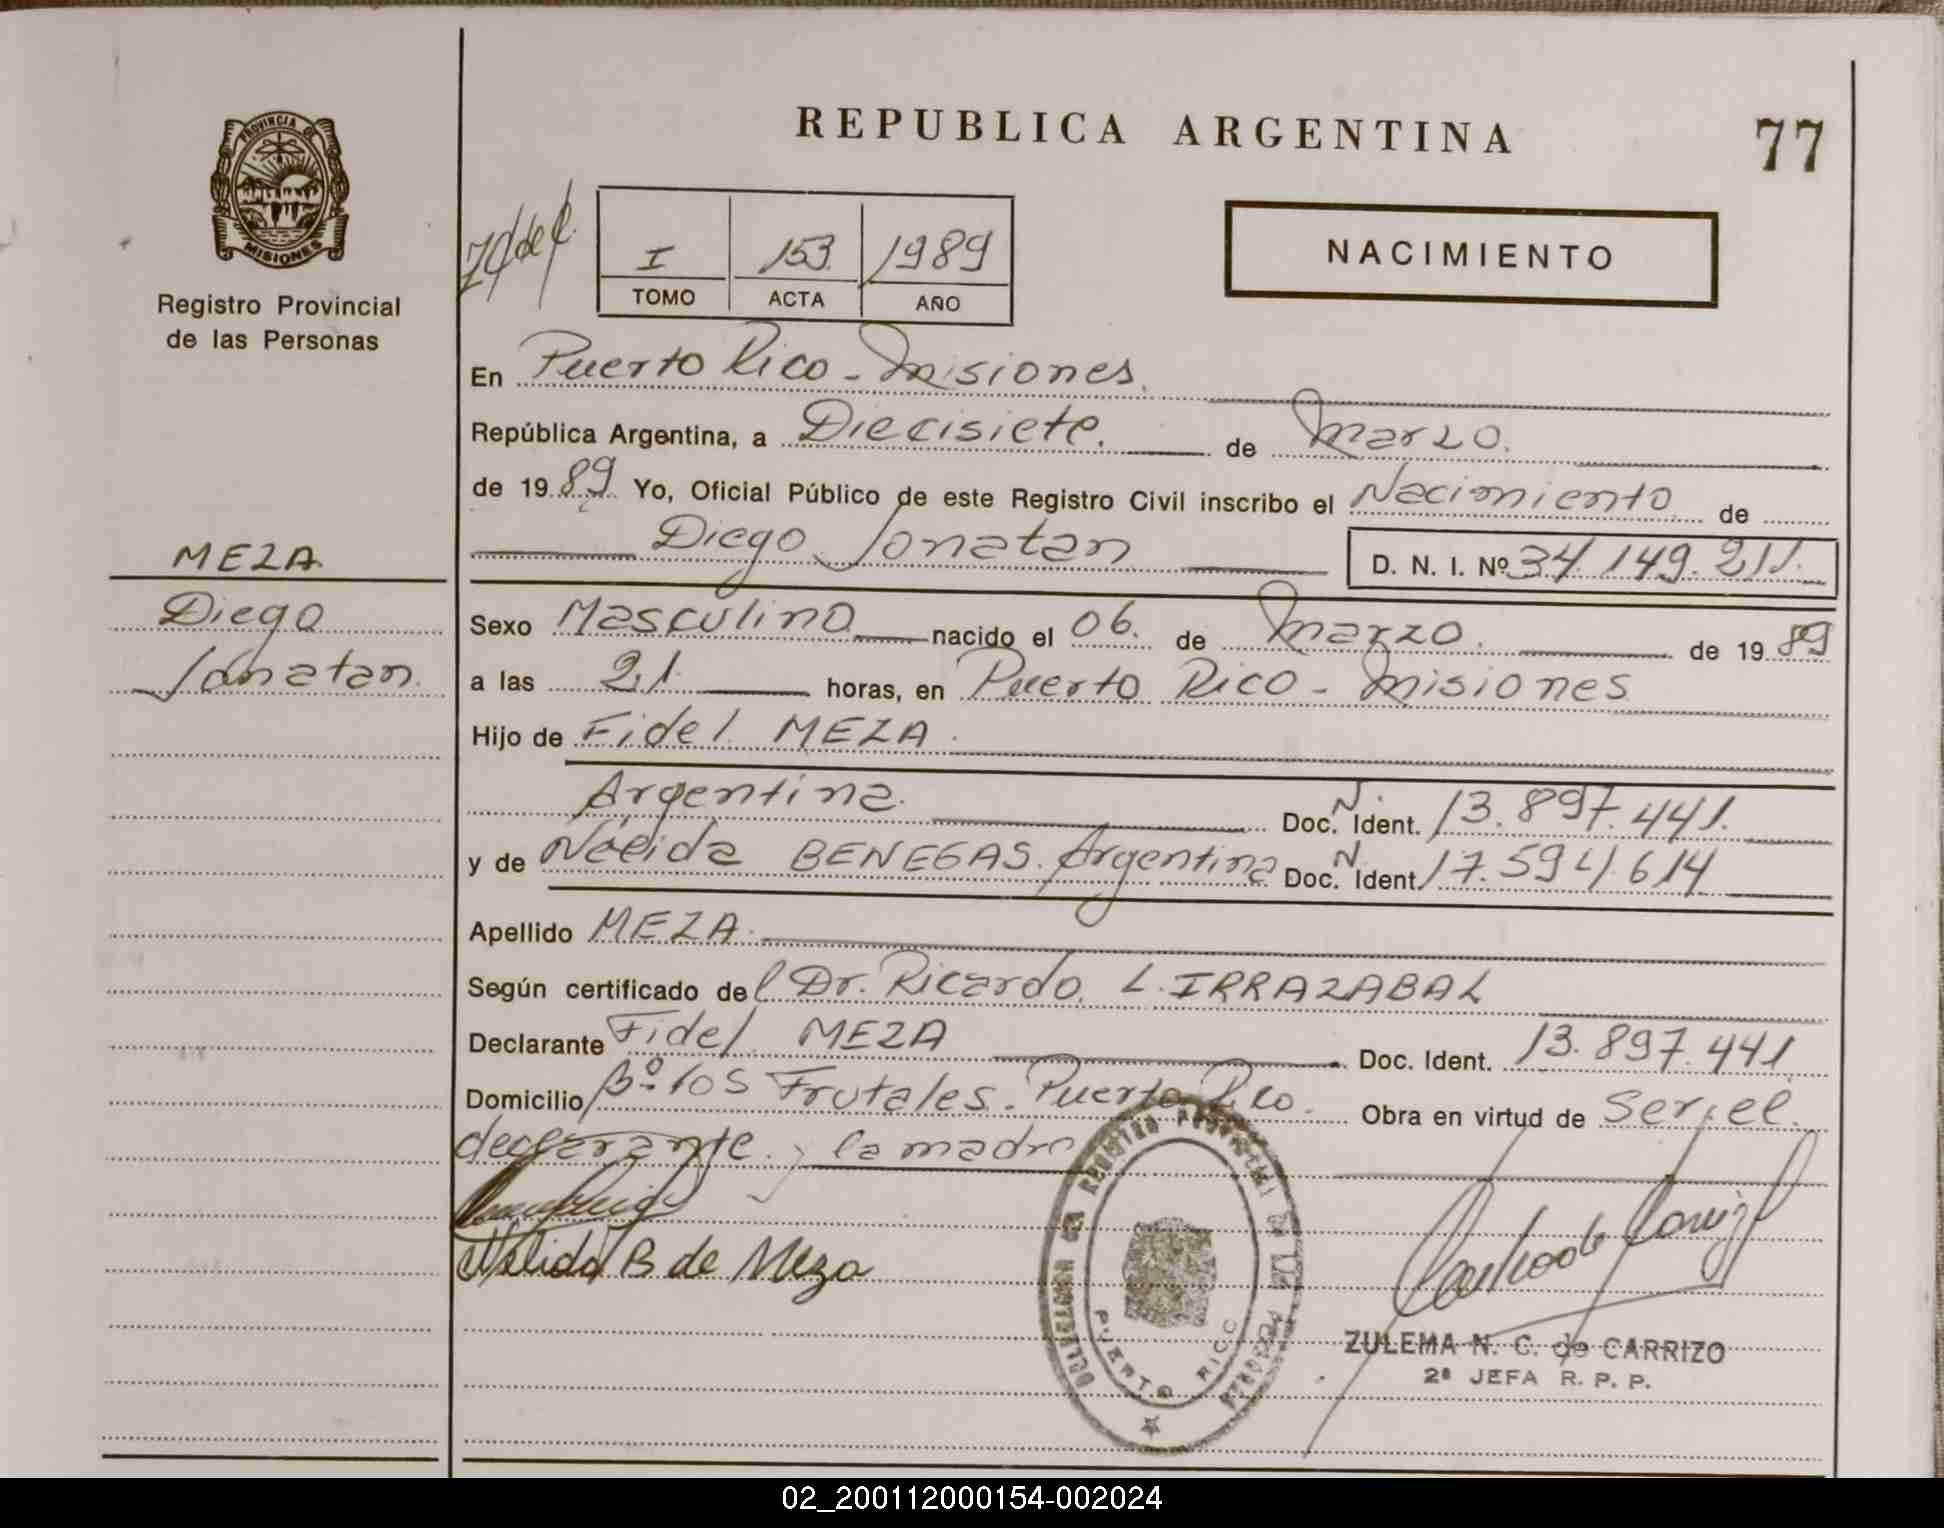 REPUBLICA ARGENTINA
77
PROVINCIA DE
MISIONES
Registro Provincial
de las Personas
I 153 1989
TOMO ACTA AÑO
NACIMIENTO
En Puerto Rico - Misiones.
República Argentina, a Diecisiete. de Marzo.
de 1989 Yo, Oficial Público de este Registro Civil inscribo el Nacimiento de
Diego Jonatan D. N. I. Nº 34.149.211.
MEZA
Diego
Jonatan.
Sexo Masculino nacido el 06. de Marzo. de 1989
a las 21. horas, en Puerto Rico - Misiones
Hijo de Fidel MEZA.
Argentina. Doc. N. Ident. 13.897.441.
y de Nélida BENEGAS. Argentina Doc. N. Ident. 17.594.614
Apellido MEZA.
Según certificado del Dr. Ricardo. L. IRRAZABAL
Declarante Fidel MEZA Doc. Ident. 13.897.441.
Domicilio Bº los Frutales. Puerto Rico. Obra en virtud de Ser el
declarante. y la madre
Nelida B de Meza
DELEGACION DEL REGISTRO PROVINCIAL DE LAS PERSONAS
PUERTO RICO
ZULEMA N. C. de CARRIZO
2ª JEFA R. P. P.
02_200112000154-002024